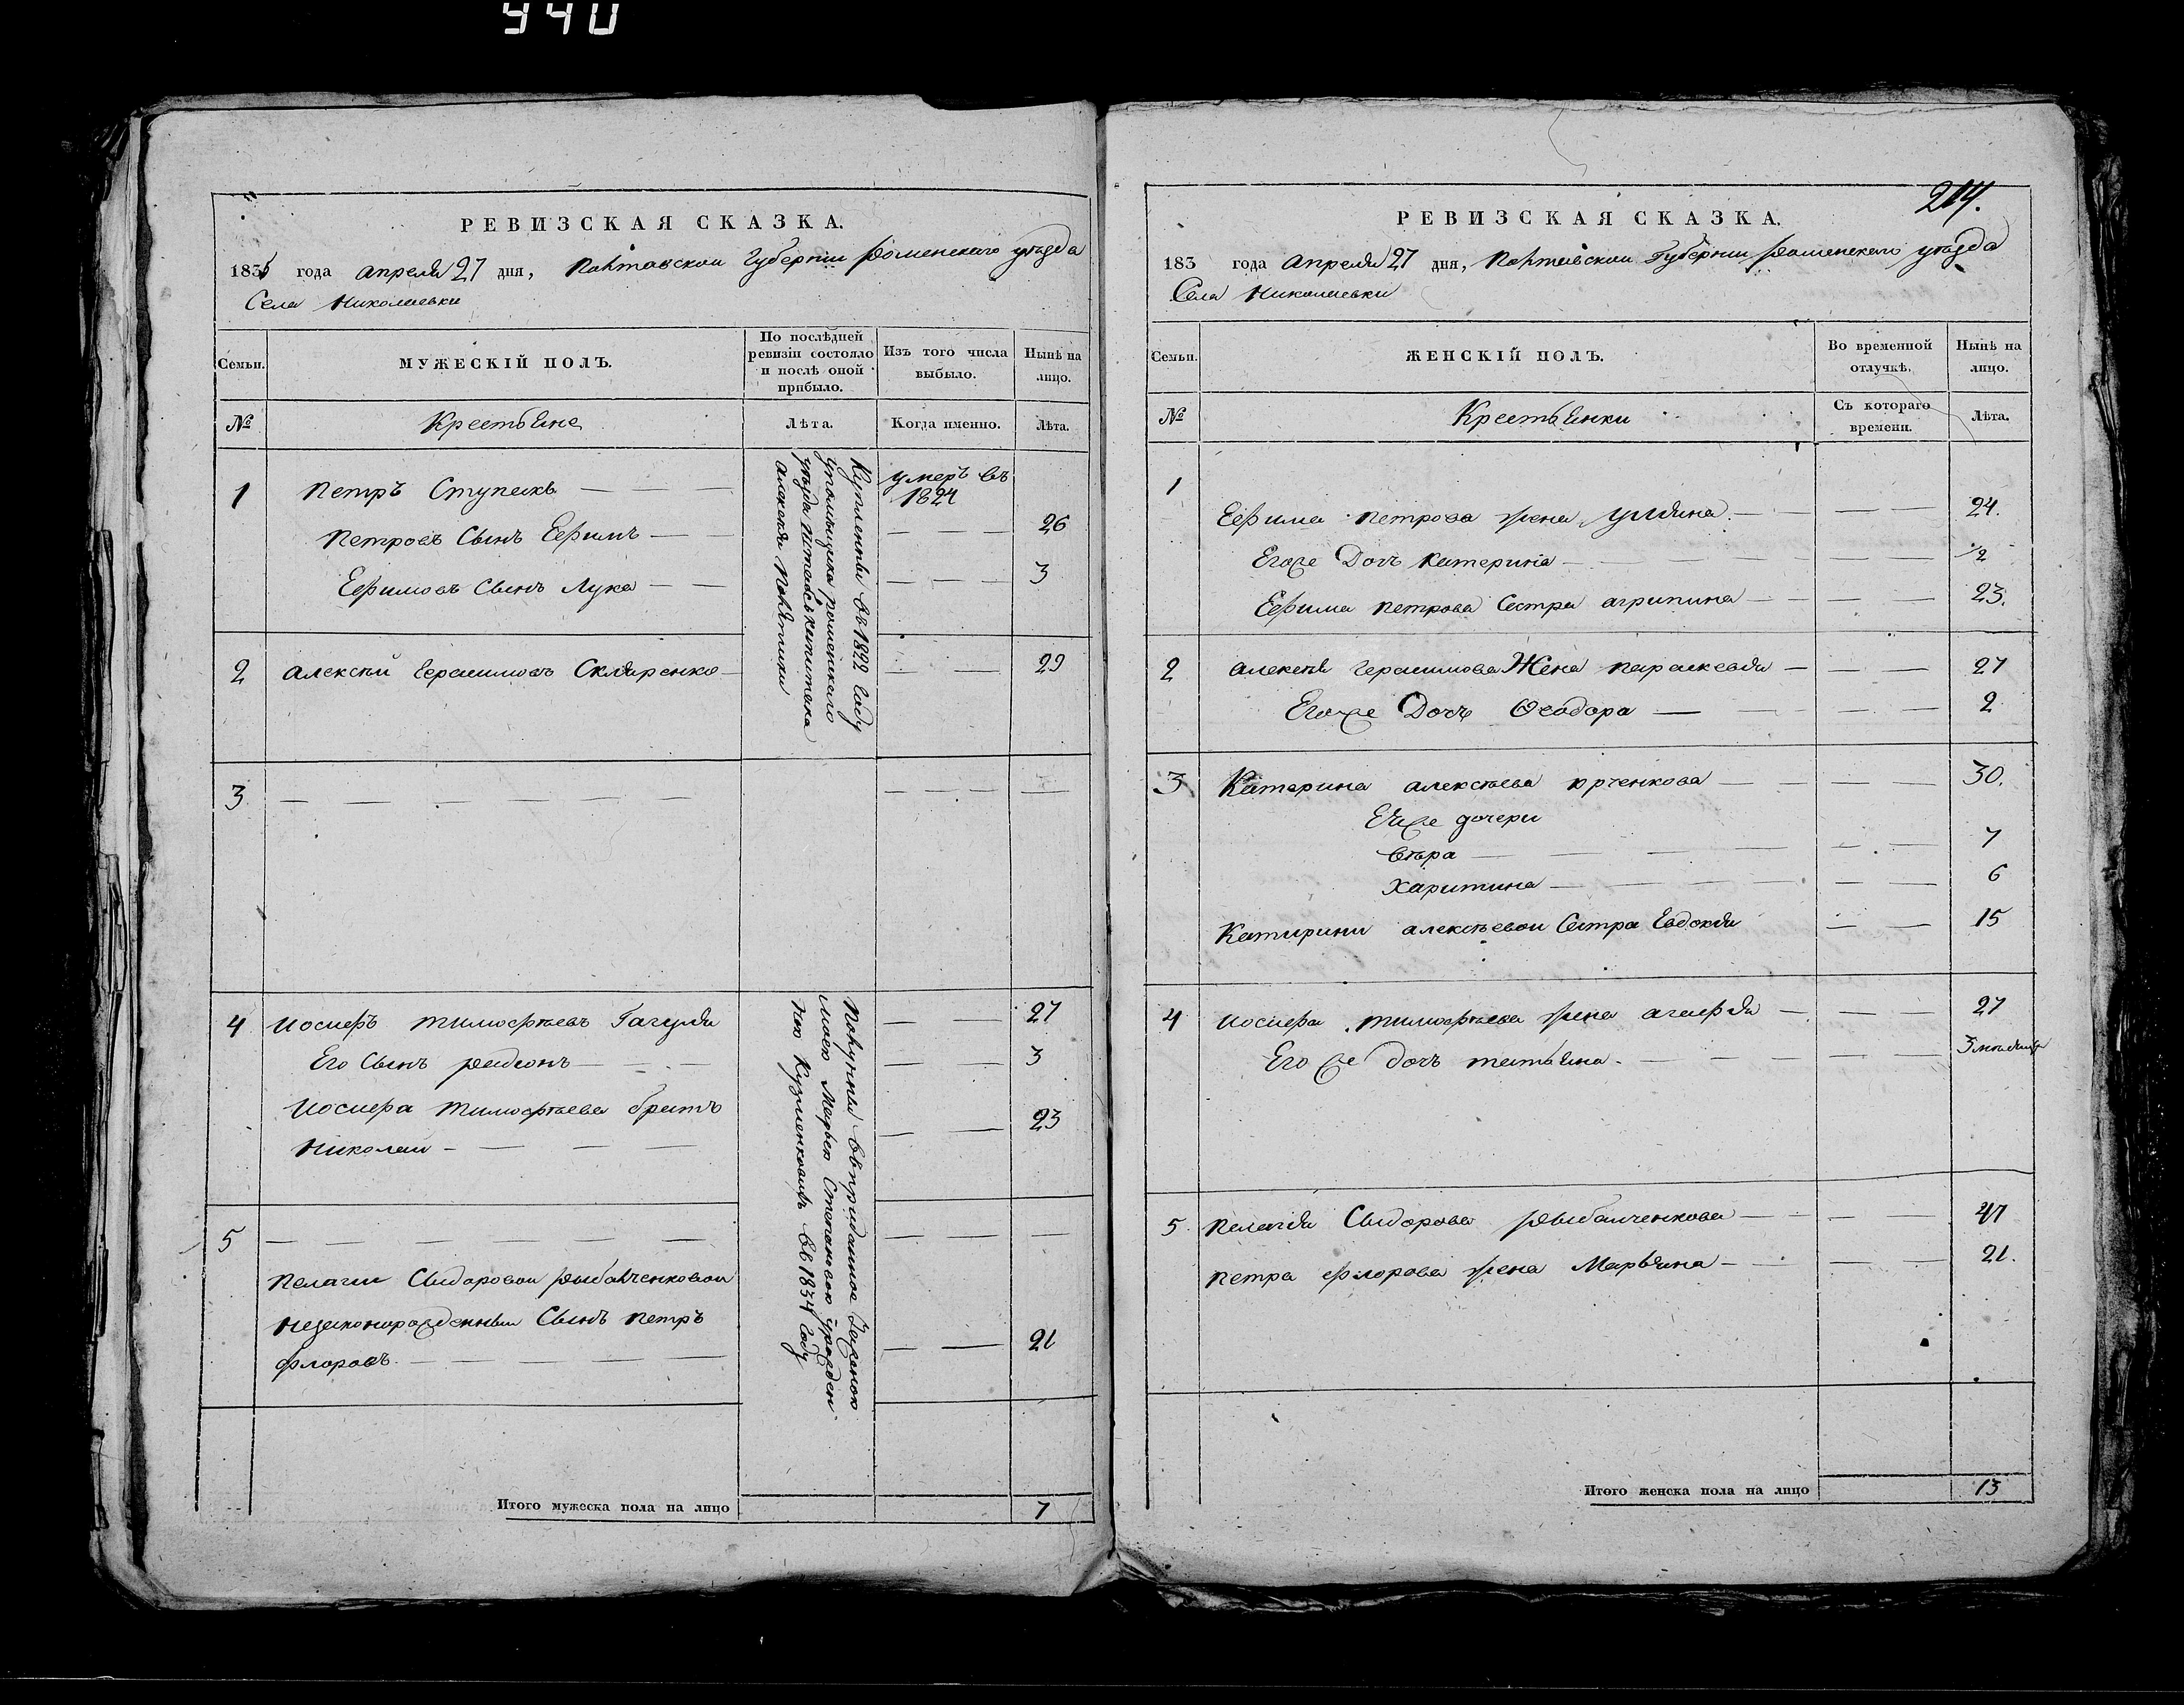 940
РЕВИЗСКАЯ СКАЗКА.
1835 года апреля 27 дня, Полтавской Губернии Роменского уѣзда
Села Николаевки
Семьи.
МУЖЕСКІЙ ПОЛЪ.
По послѣдней ревизіи состояло и послѣ оной прибыло.
Изъ того числа выбыло.
Нынѣ на лицо.
№
Крестьяне
Лѣта.
Когда именно.
Лѣта.
1
Петръ Ступакъ
умеръ въ 1824
Петровъ Сынъ Ефимъ
26
Ефимовъ Сынъ Лука
3
Купленны въ 1822 Году
упомѣщика роменскаго
уѣзда
алексѣя
2
алексѣй Герасимовъ Скляренко
29
3
4
Иосифъ Тимофѣевъ Гагуля
27
Его Сынъ Родионъ
3
Иосифа Тимофѣева братъ
Николай
23
Покупны въ приданное Женою
моею Марьею Степановою урожден
ною в 1834 Году
5
Пелагии Сидоровой Рыбалченковой
незаконорожденный Сынъ Петръ
Флоровъ
21
Итого мужеска пола на лицо
7
214.
РЕВИЗСКАЯ СКАЗКА.
183 года Апреля 27 дня, Полтавской Губернии Роменского уѣзда
Села Николаевки
Семьи.
ЖЕНСКІЙ ПОЛЪ.
Во временной отлучкѣ.
Нынѣ на лицо.
№
Крестьянки
Съ котораго времени.
Лѣта.
1
Ефима петрова жена Ульяна
24.
Егоже Дочъ Катерина
Ефима петрова Сестра агрипина
23.
2
алексѣя Герасимова Жена параскевия
27
Егоже Дочъ Ѳеодора
2
3
Катерина алексѣева юрченкова
30.
Еяже дочери
вѣра
7
Харитина
6
Катирини алексѣевой Сестра Евдокия
15
4
Иосифа Тимофѣева жена агафия
27
Его же дочъ татьяна
3 мѣсяца
5
Пелагия Сидорова Рыбалченкова
47
петра Флорова жена Марьяна
21.
Итого женска пола на лицо
13